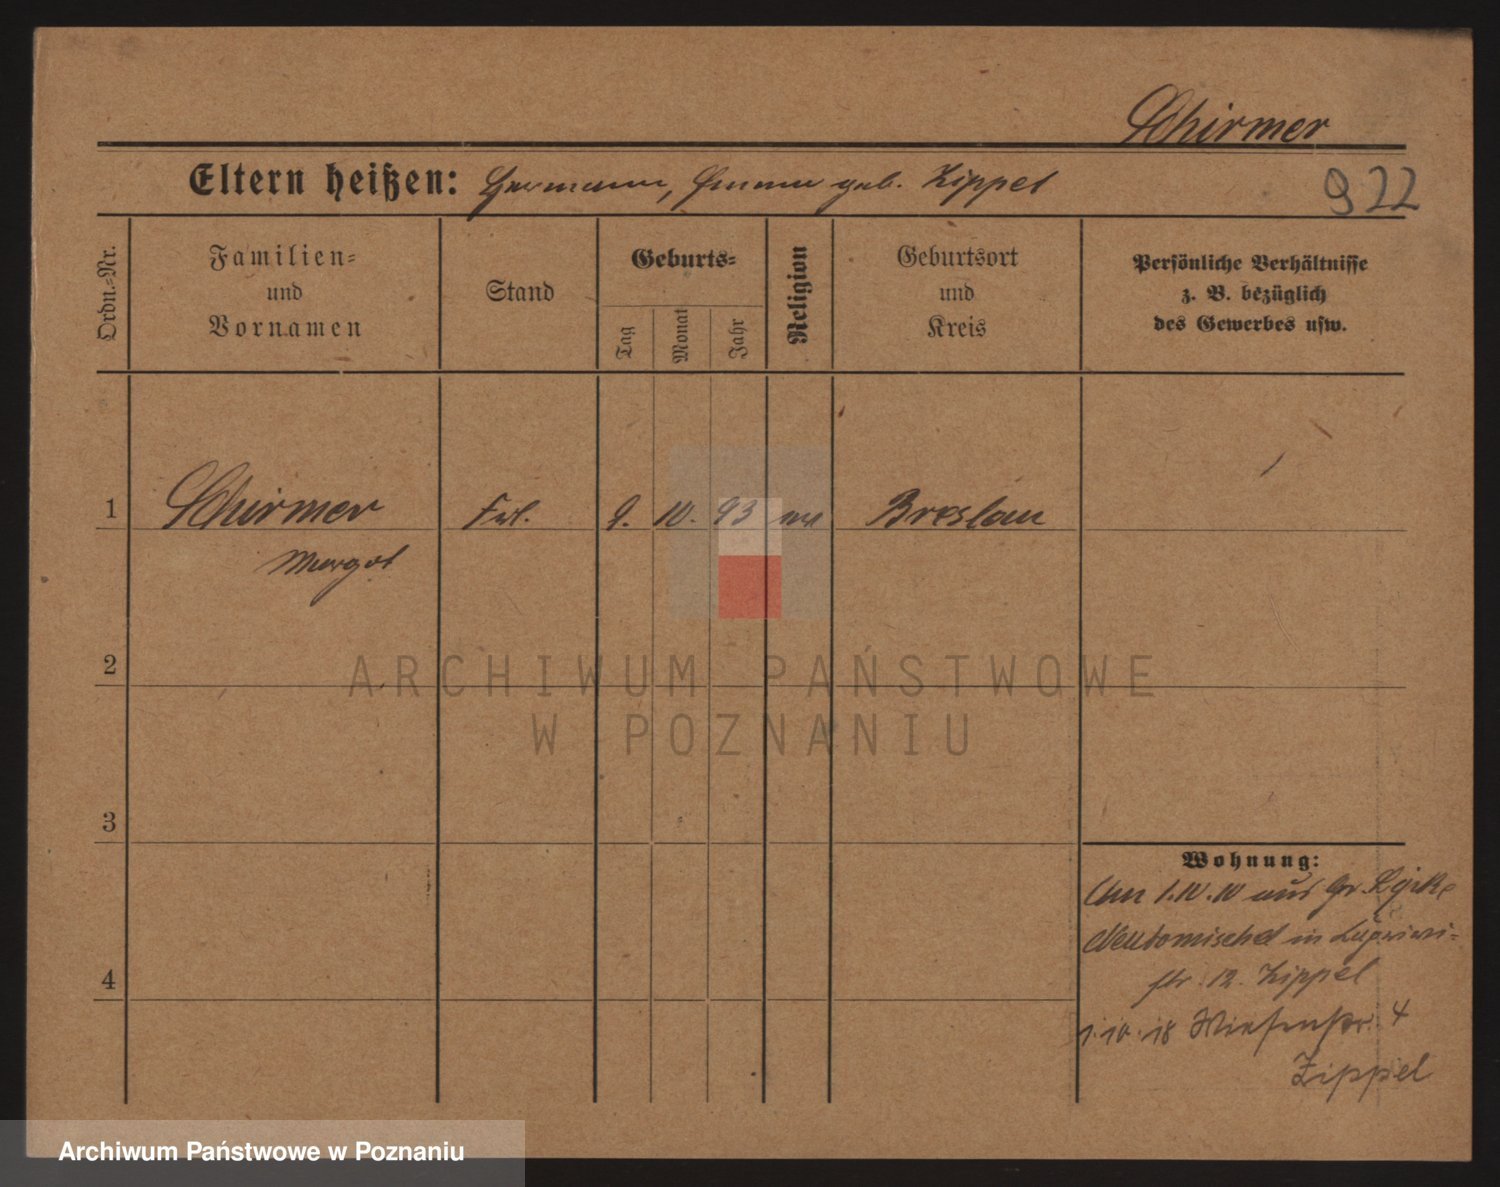 Schirmer
Eltern heißen: Hermann, Emma geb. Zippel
922
Ordn.-Nr.
Familien-
und
Vornamen
Stand
Geburts-
Tag
Monat
Jahr
Religion
Geburtsort
und
Kreis
Persönliche Verhältnisse
z. B. bezüglich
des Gewerbes usw.
1
Schirmer
Frl.
9. 10. 93
Breslau
Margot
2
ARCHIWUM PAŃSTWOWE
W POZNANIU
3
Wohnung:
1.10.10 aus Gr.
Neutomischel in
str. 12. Zippel
4
1.10.18 Wiesenstr. 4
Zippel
Archiwum Państwowe w Poznaniu